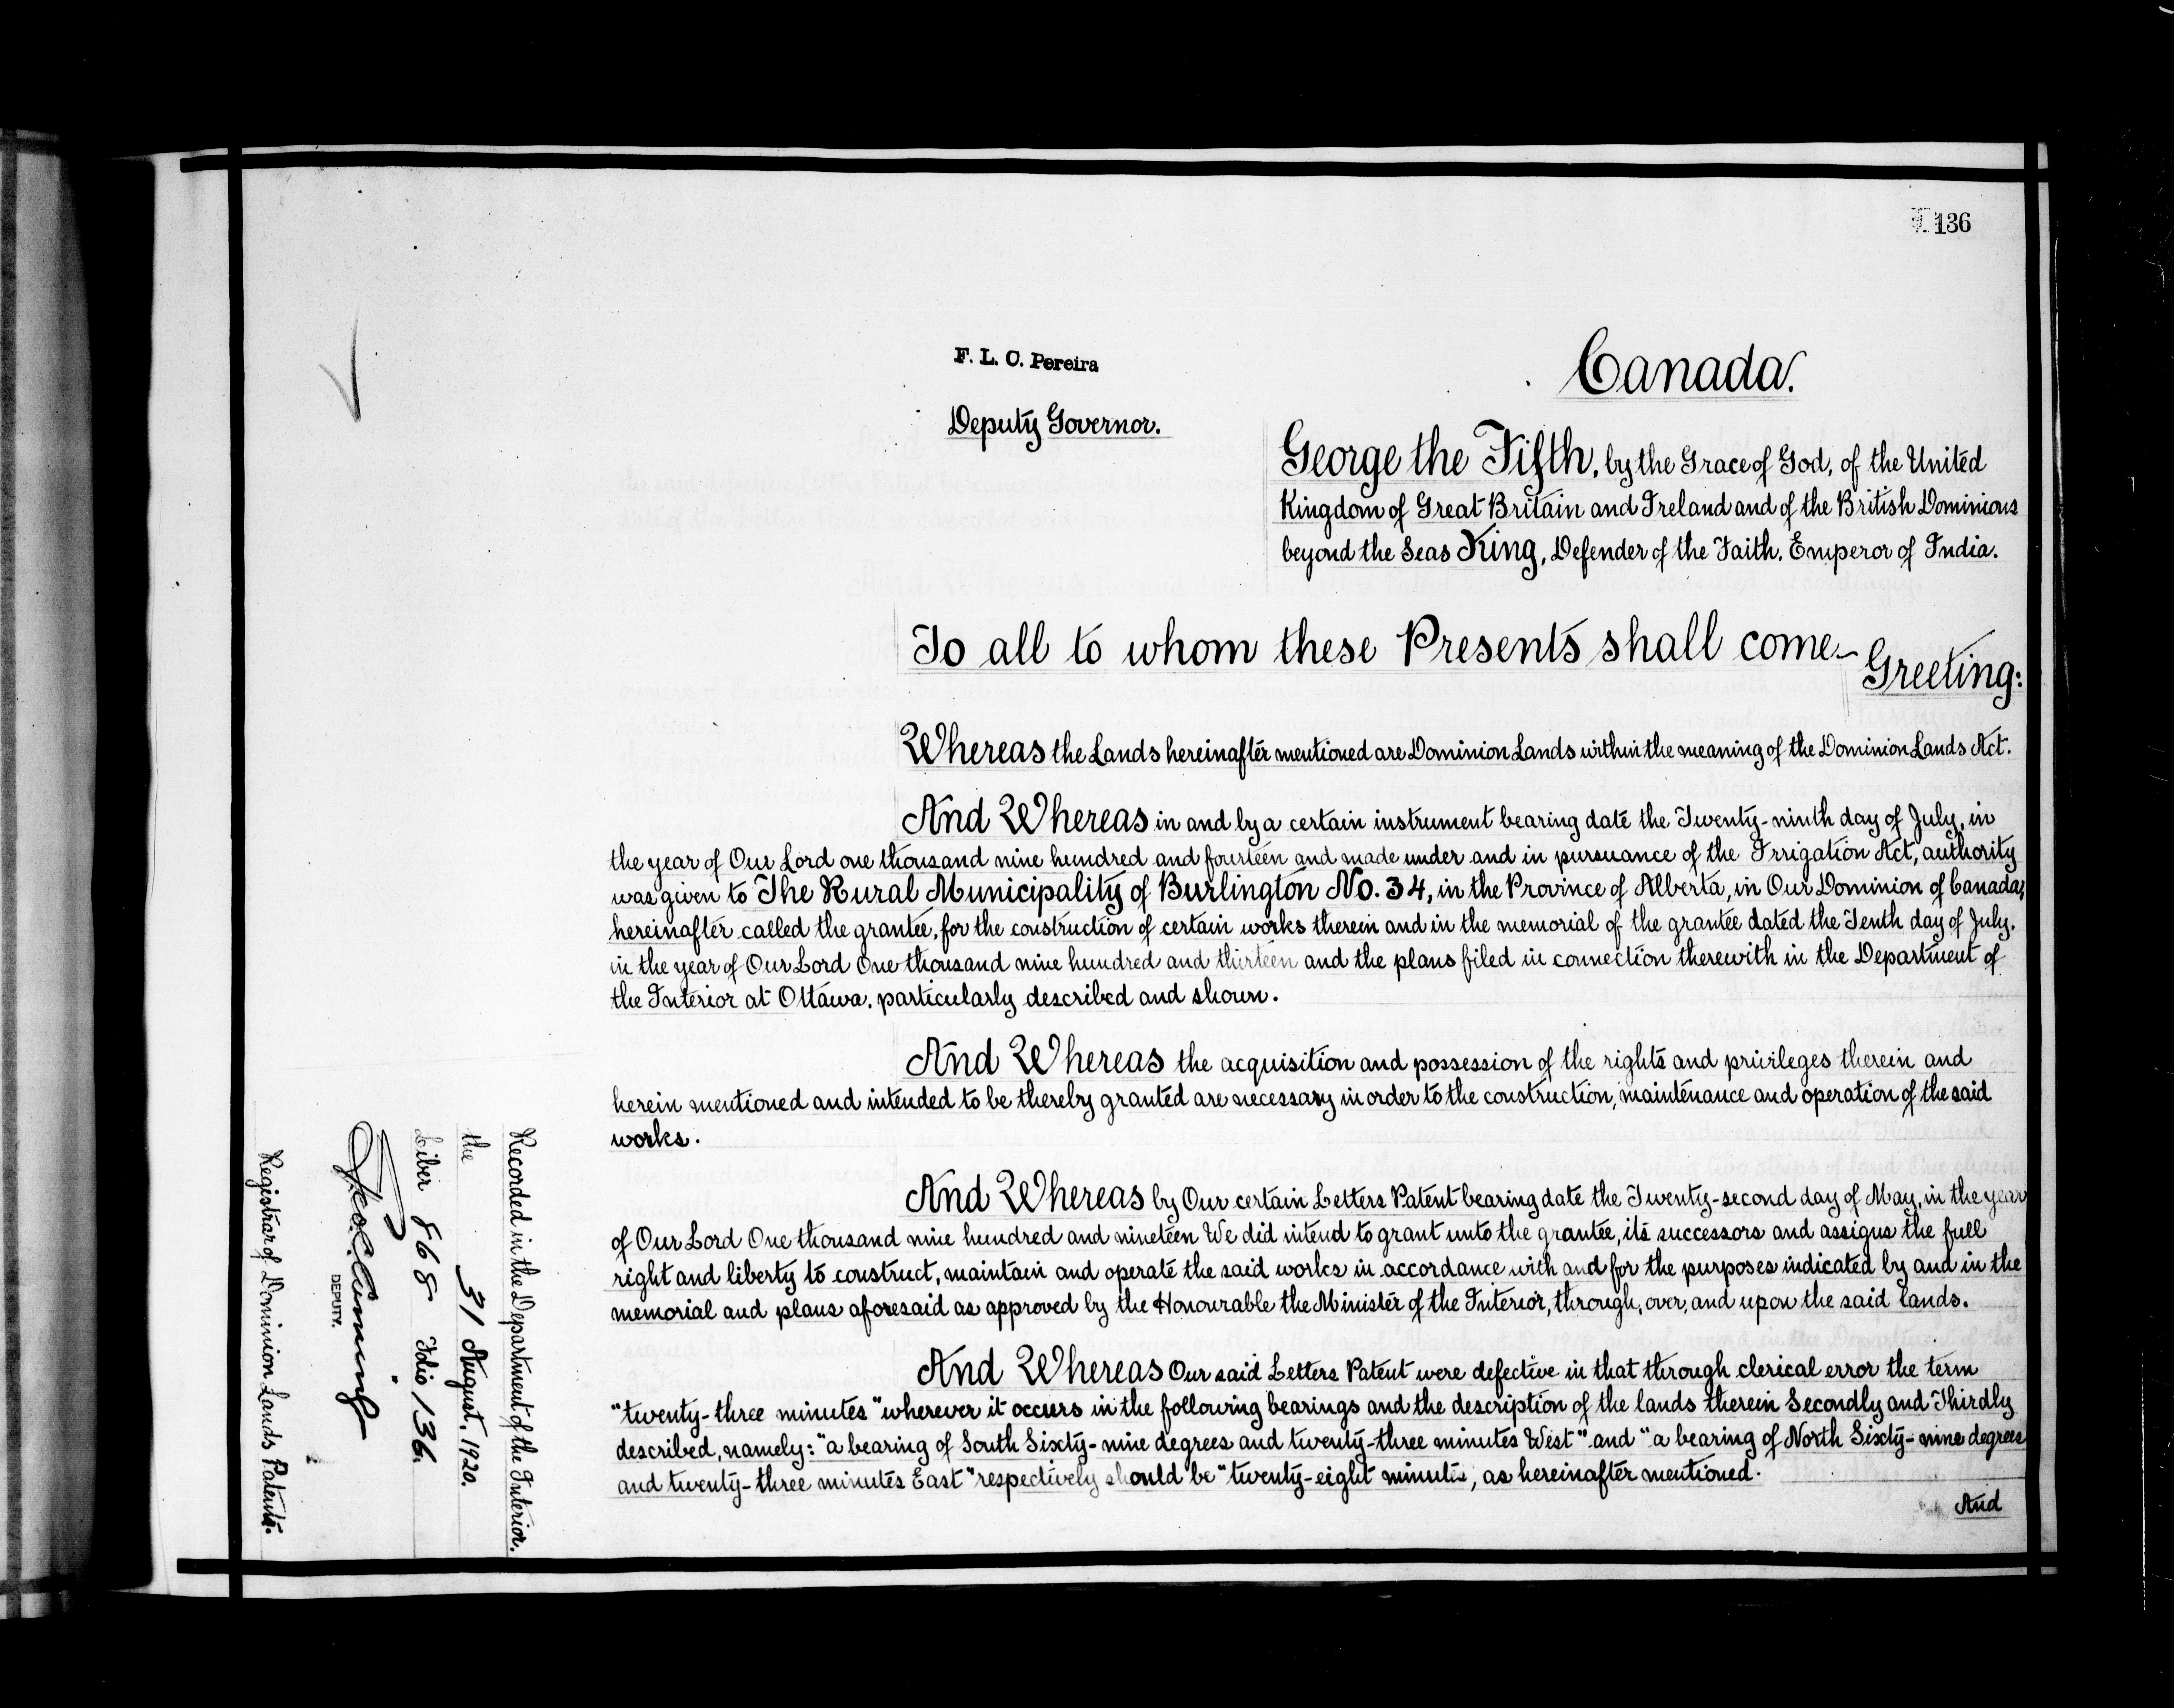 136
F. L. C. Pereira
Deputy Governor.
Canada.
George the Fifth, by the Grace of God, of the United
Kingdom of Great Britain and Ireland and of the British Dominions
beyond the Seas King, Defender of the Faith, Emperor of India.
To all to whom these Presents shall come—
Greeting:
Whereas the Lands hereinafter mentioned are Dominion Lands within the meaning of the Dominion Lands Act.
And Whereas in and by a certain instrument bearing date the Twenty-ninth day of July, in
the year of Our Lord one thousand nine hundred and fourteen and made under and in pursuance of the Irrigation Act, authority
was given to The Rural Municipality of Burlington No. 34, in the Province of Alberta, in Our Dominion of Canada,
hereinafter called the grantee, for the construction of certain works therein and in the memorial of the grantee dated the Tenth day of July,
in the year of Our Lord One thousand nine hundred and thirteen and the plans filed in connection therewith in the Department of
the Interior at Ottawa, particularly described and shown.
And Whereas the acquisition and possession of the rights and privileges therein and
herein mentioned and intended to be thereby granted are necessary in order to the construction, maintenance and operation of the said
works.
And Whereas by Our certain Letters Patent bearing date the Twenty-second day of May, in the year
of Our Lord One thousand nine hundred and nineteen We did intend to grant unto the grantee, its successors and assigns the full
right and liberty to construct, maintain and operate the said works in accordance with and for the purposes indicated by and in the
memorial and plans aforesaid as approved by the Honourable the Minister of the Interior, through, over, and upon the said lands.
And Whereas Our said Letters Patent were defective in that through clerical error the term
"twenty-three minutes" wherever it occurs in the following bearings and the description of the lands therein Secondly and Thirdly
described, namely: "a bearing of South Sixty-nine degrees and twenty-three minutes West" and "a bearing of North Sixty-nine degrees
and twenty-three minutes East" respectively should be "twenty-eight minutes, as hereinafter mentioned.
And
Recorded in the Department of the Interior.
the 31 August, 1920.
Liber 868 Folio 136.
DEPUTY.
Registrar of Dominion Lands Patents.